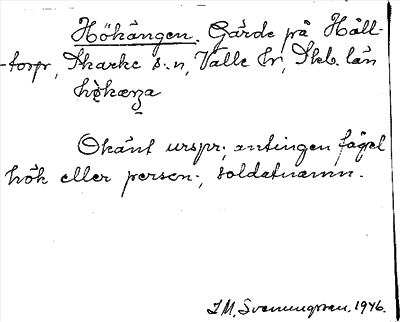 Hökängen. Gärde på Håll-
torp, Skarke s:n, Valle hr, Skb. län
hö̀kæŋa
Okänt urspr., antingen fågel
hök eller person-, soldatnamn.
J.M. Svenungsson. 1946.